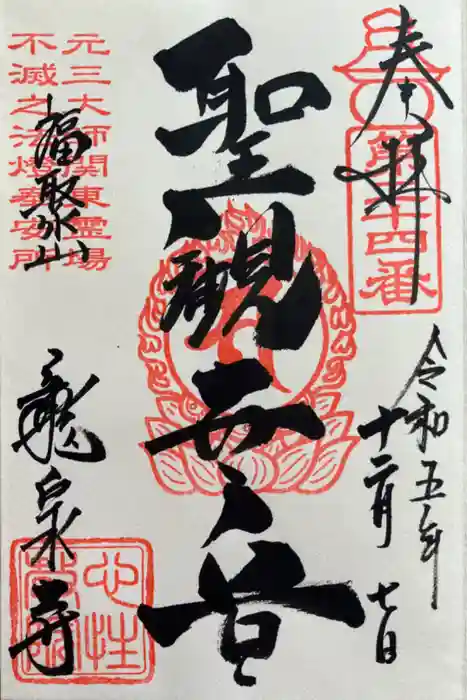 奉拝
第十四番
令和五年
十二月七日
聖観世音
元三大師関東霊場
不滅之法燈奉安所
福聚山
龍泉寺